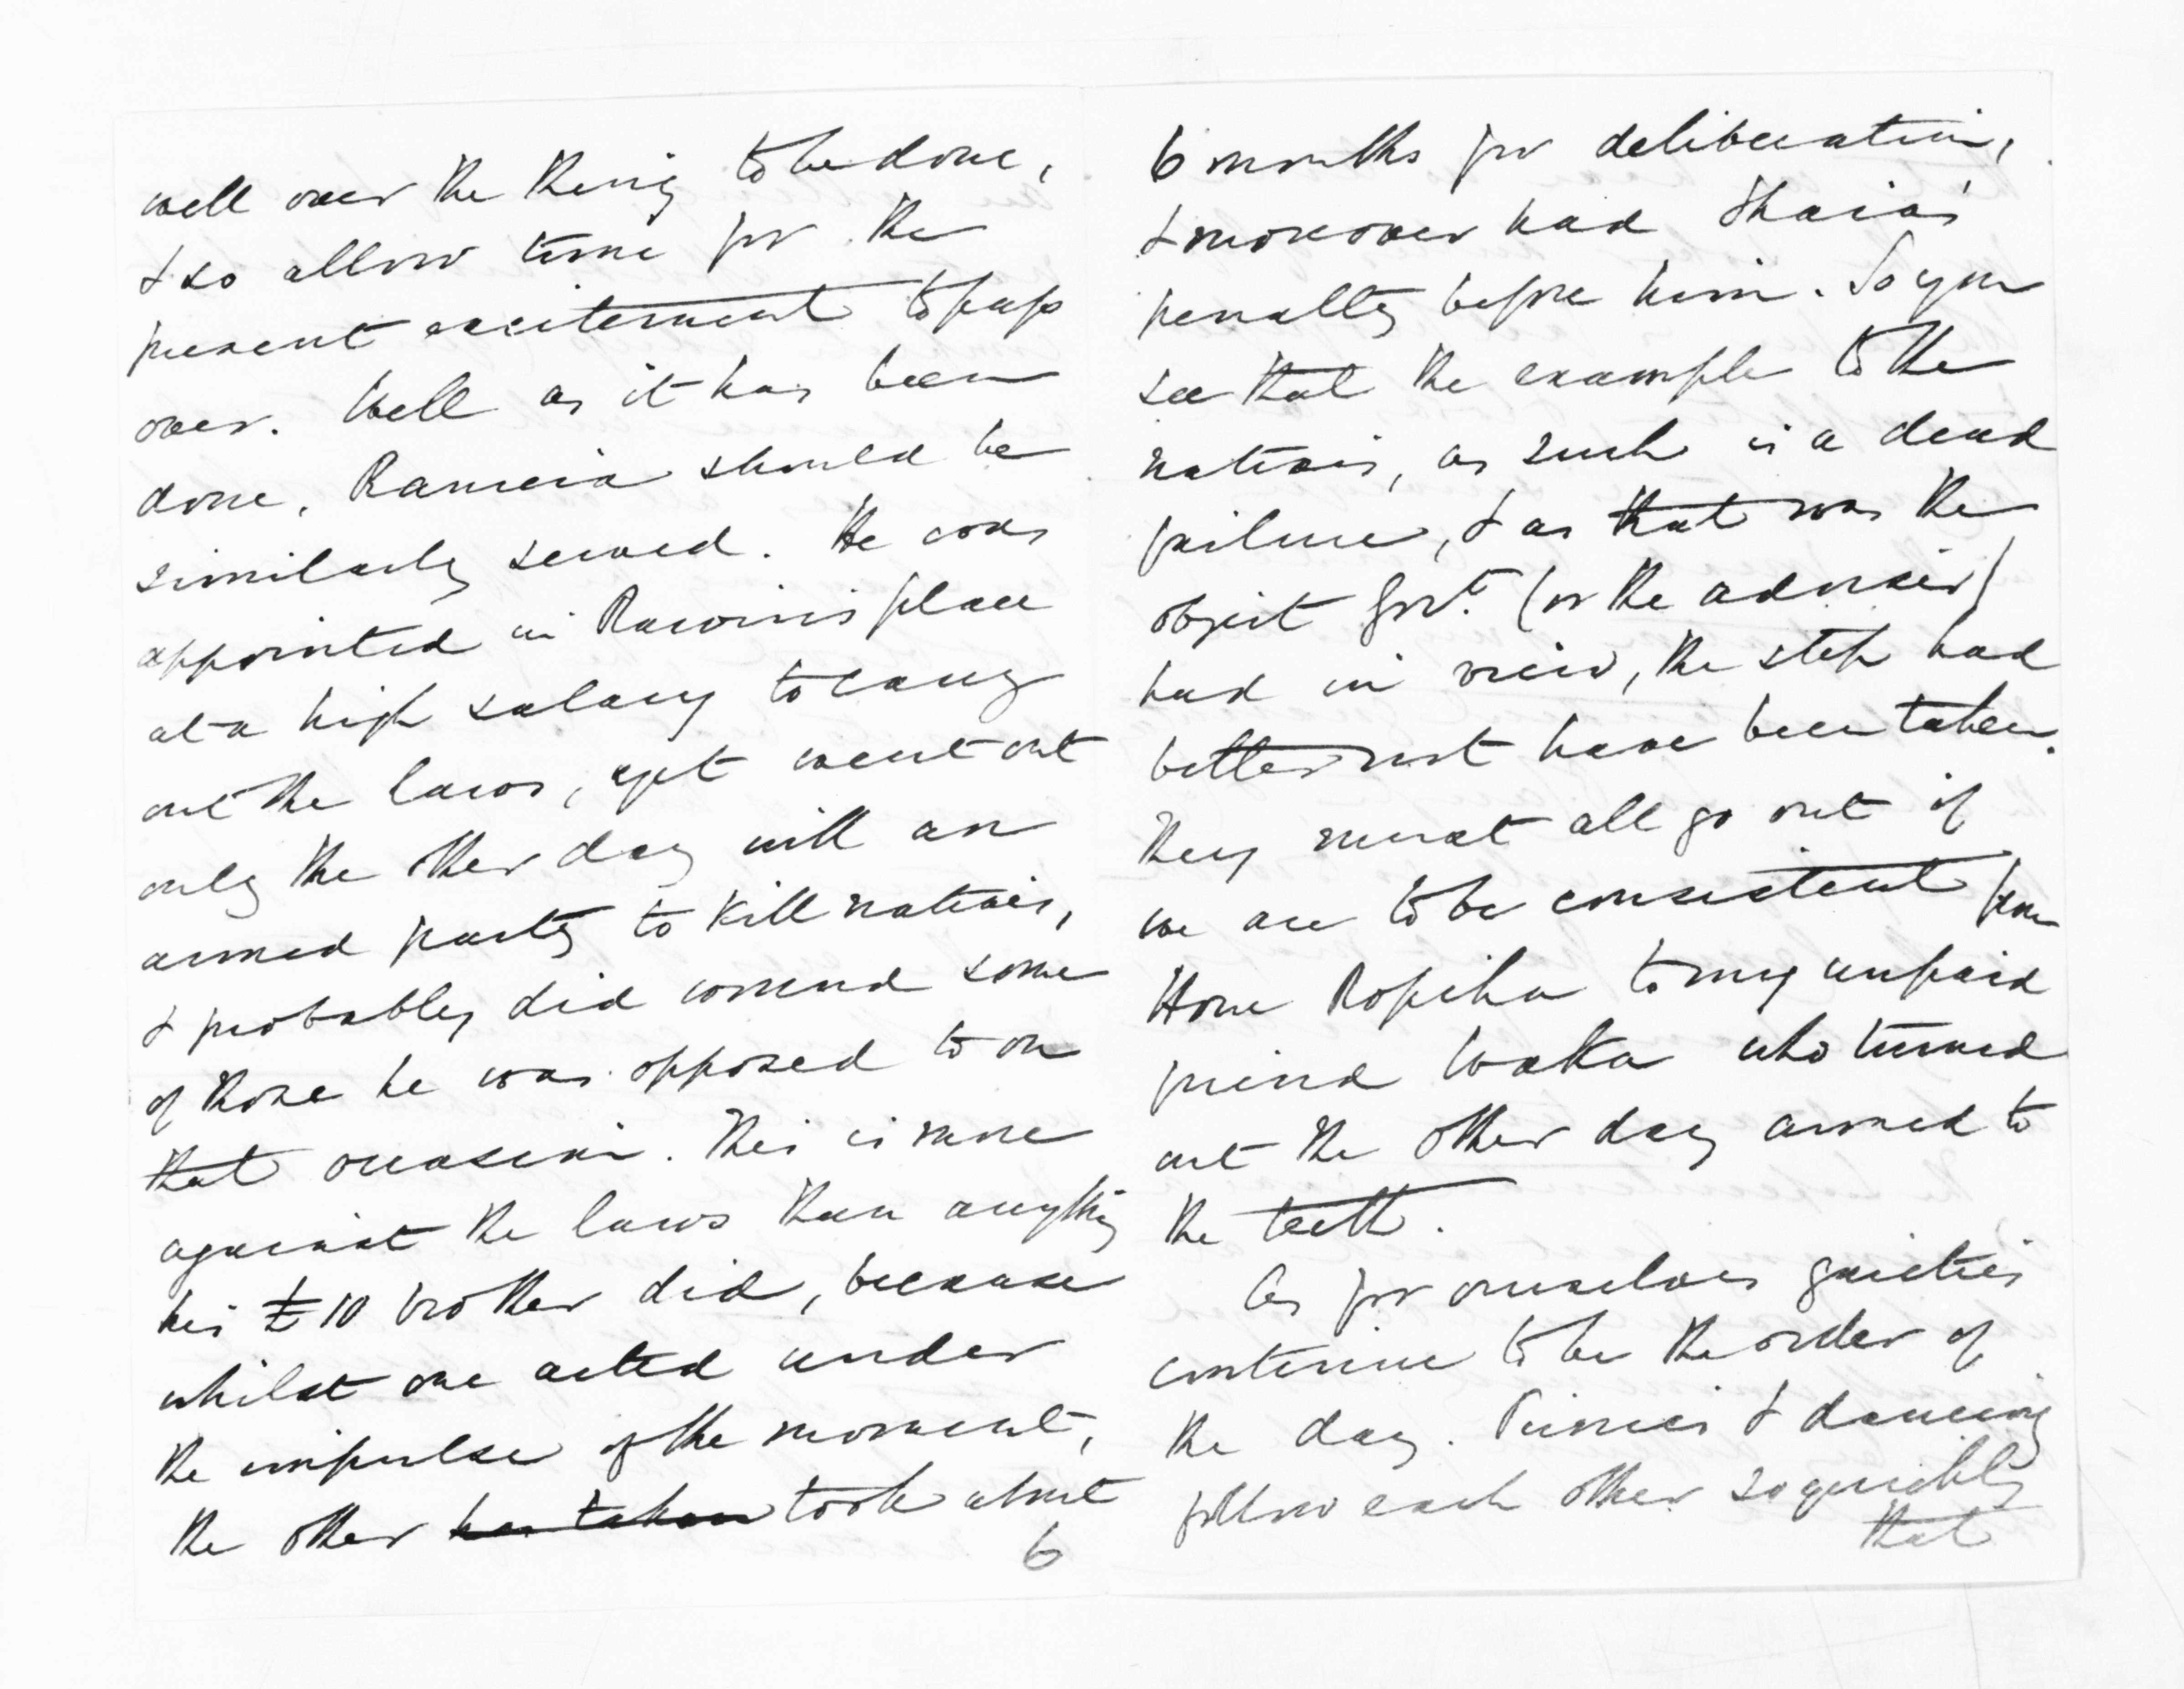 well over the thing to be done,
& so allow time for the
present excitement to pass
over. Well as it has been
done, Rameia should be
similarly served. He was
appointed in Rawiris place
at a high salary to carry
out the laws, yet went out
only the other day with an
armed party to kill natives,
& probably did wound some
of those he was opposed to on
that occasion. This is more
against the laws than anything
his £10 brother did, because
whilst one acted under
the impulse of the moment,
the other has taken took about
6
6 months for deliberation,
& moreover had Ihaia's
penalty before him. So you
see that the example to the
natives, as such is a dead
failure, & as that was the
object Govt. (or the adviser)
had in view, the step had
better not have been taken.
They must all go out if
we are to be consistent from
Hone Ropiha to my unpaid
friend Waka who turned
out the other day armed to
the teeth.
As for ourselves gaieties
continue to be the order of
the day. Picnics & dancing
follow each other so quickly
that